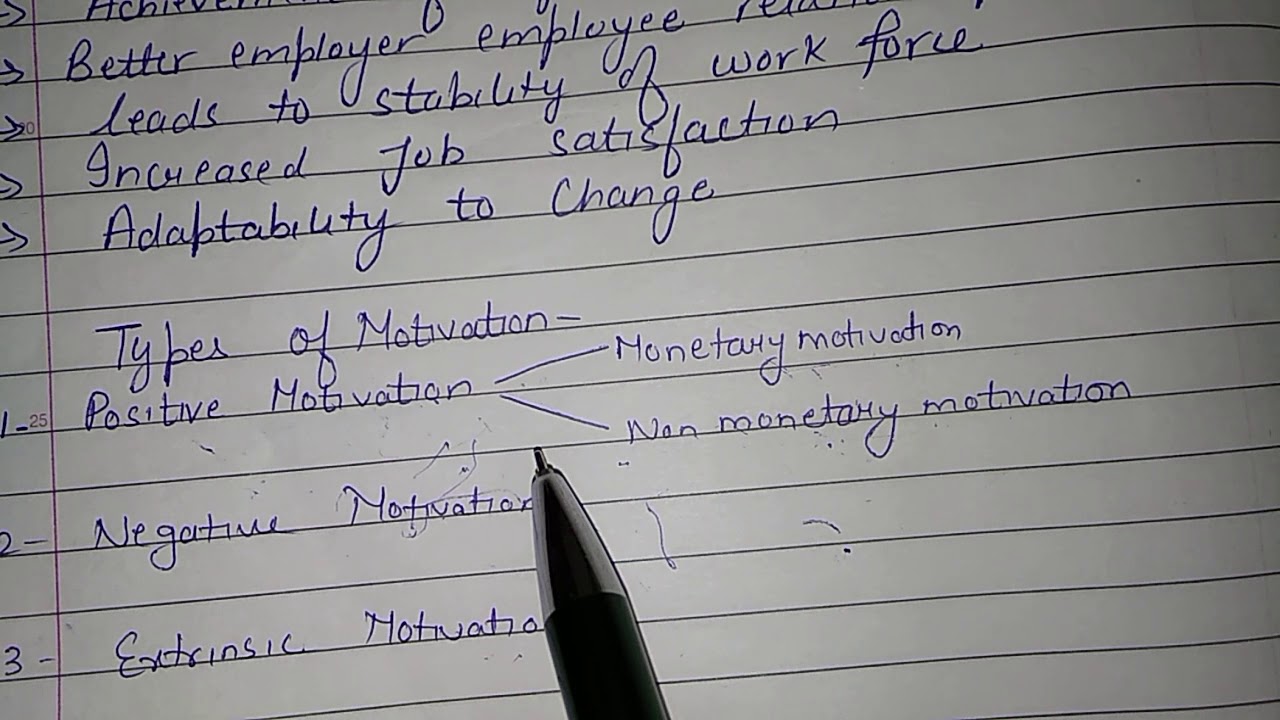 →
→ Better employer employee
→ leads to stability of work force
→ Increased Job satisfaction
→ Adaptability to Change
Types of Motivation-
Monetary motivation
1- Positive Motivation
Non monetary motivation
2- Negative Motivation
3- Extrinsic Motivatio